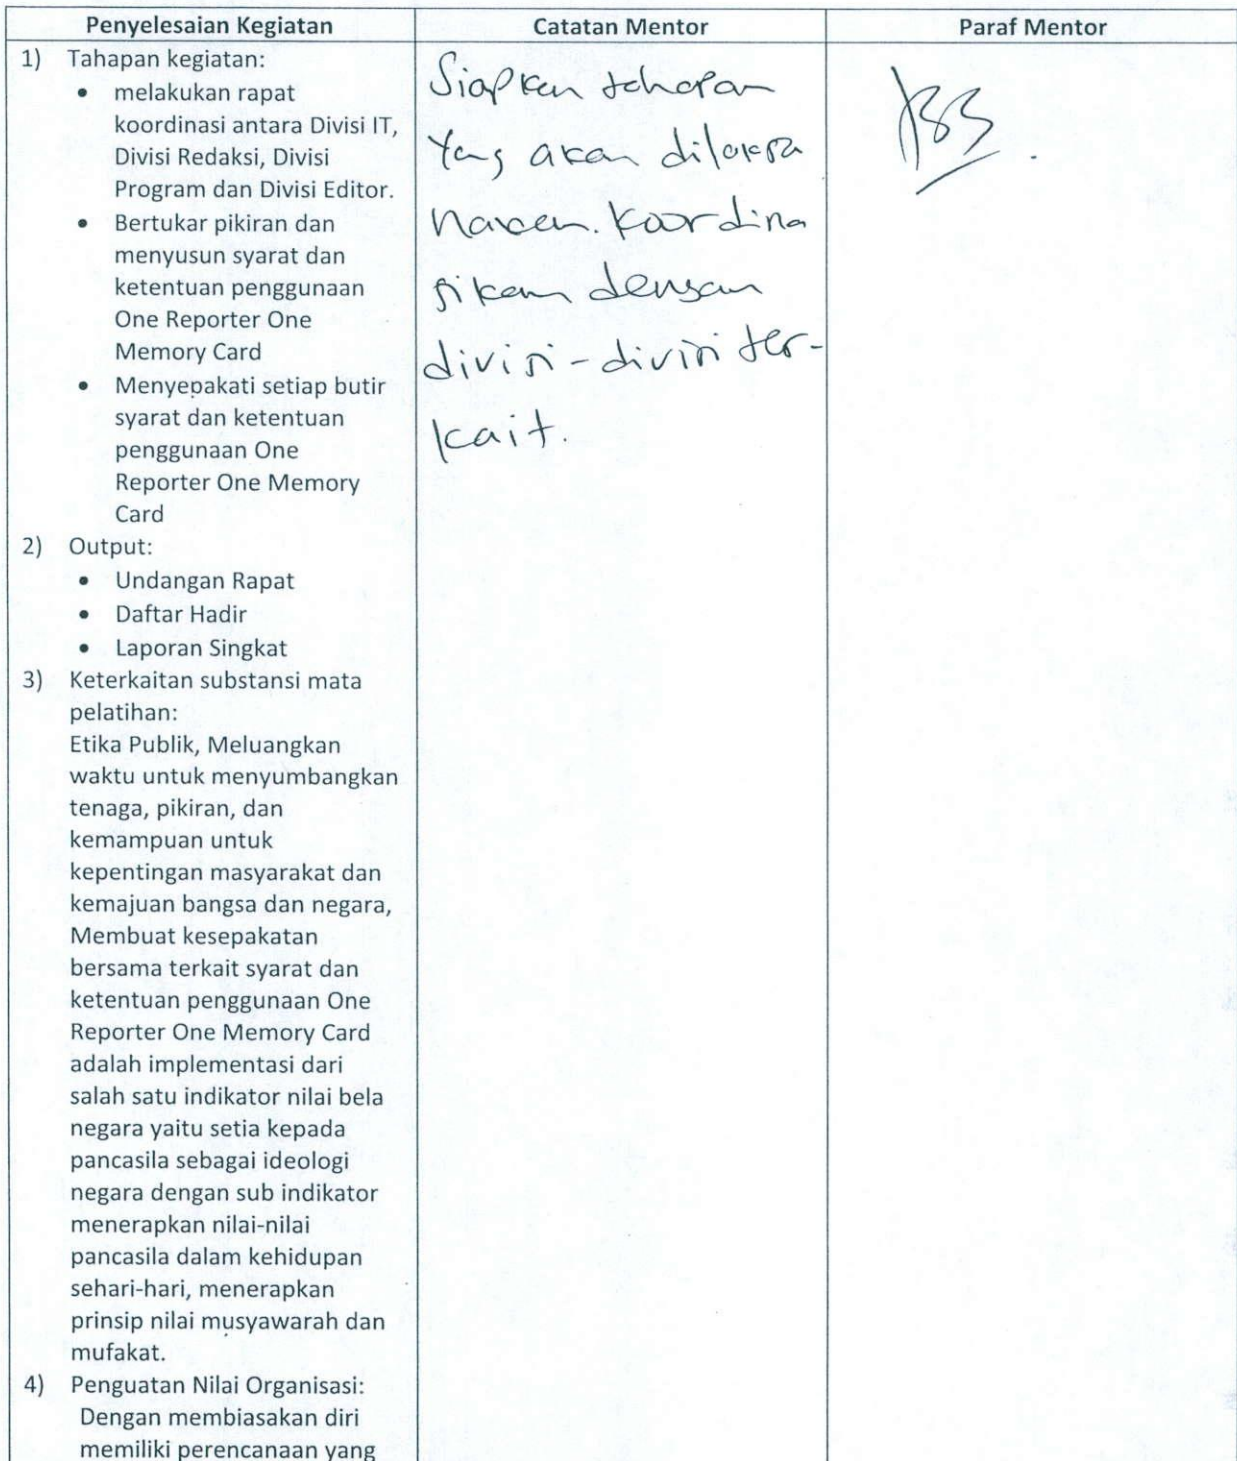 Penyelesaian Kegiatan
Catatan Mentor
Paraf Mentor
1) Tahapan kegiatan:
• melakukan rapat
koordinasi antara Divisi IT,
Divisi Redaksi, Divisi
Program dan Divisi Editor.
• Bertukar pikiran dan
menyusun syarat dan
ketentuan penggunaan
One Reporter One
Memory Card
• Menyepakati setiap butir
syarat dan ketentuan
penggunaan One
Reporter One Memory
Card
2) Output:
• Undangan Rapat
• Daftar Hadir
• Laporan Singkat
3) Keterkaitan substansi mata
pelatihan:
Etika Publik, Meluangkan
waktu untuk menyumbangkan
tenaga, pikiran, dan
kemampuan untuk
kepentingan masyarakat dan
kemajuan bangsa dan negara,
Membuat kesepakatan
bersama terkait syarat dan
ketentuan penggunaan One
Reporter One Memory Card
adalah implementasi dari
salah satu indikator nilai bela
negara yaitu setia kepada
pancasila sebagai ideologi
negara dengan sub indikator
menerapkan nilai-nilai
pancasila dalam kehidupan
sehari-hari, menerapkan
prinsip nilai musyawarah dan
mufakat.
4) Penguatan Nilai Organisasi:
Dengan membiasakan diri
memiliki perencanaan yang
Siapkan tahapan
yang akan dilaksa
nakan. Koordina
sikan dengan
divisi-divisi ter-
kait.